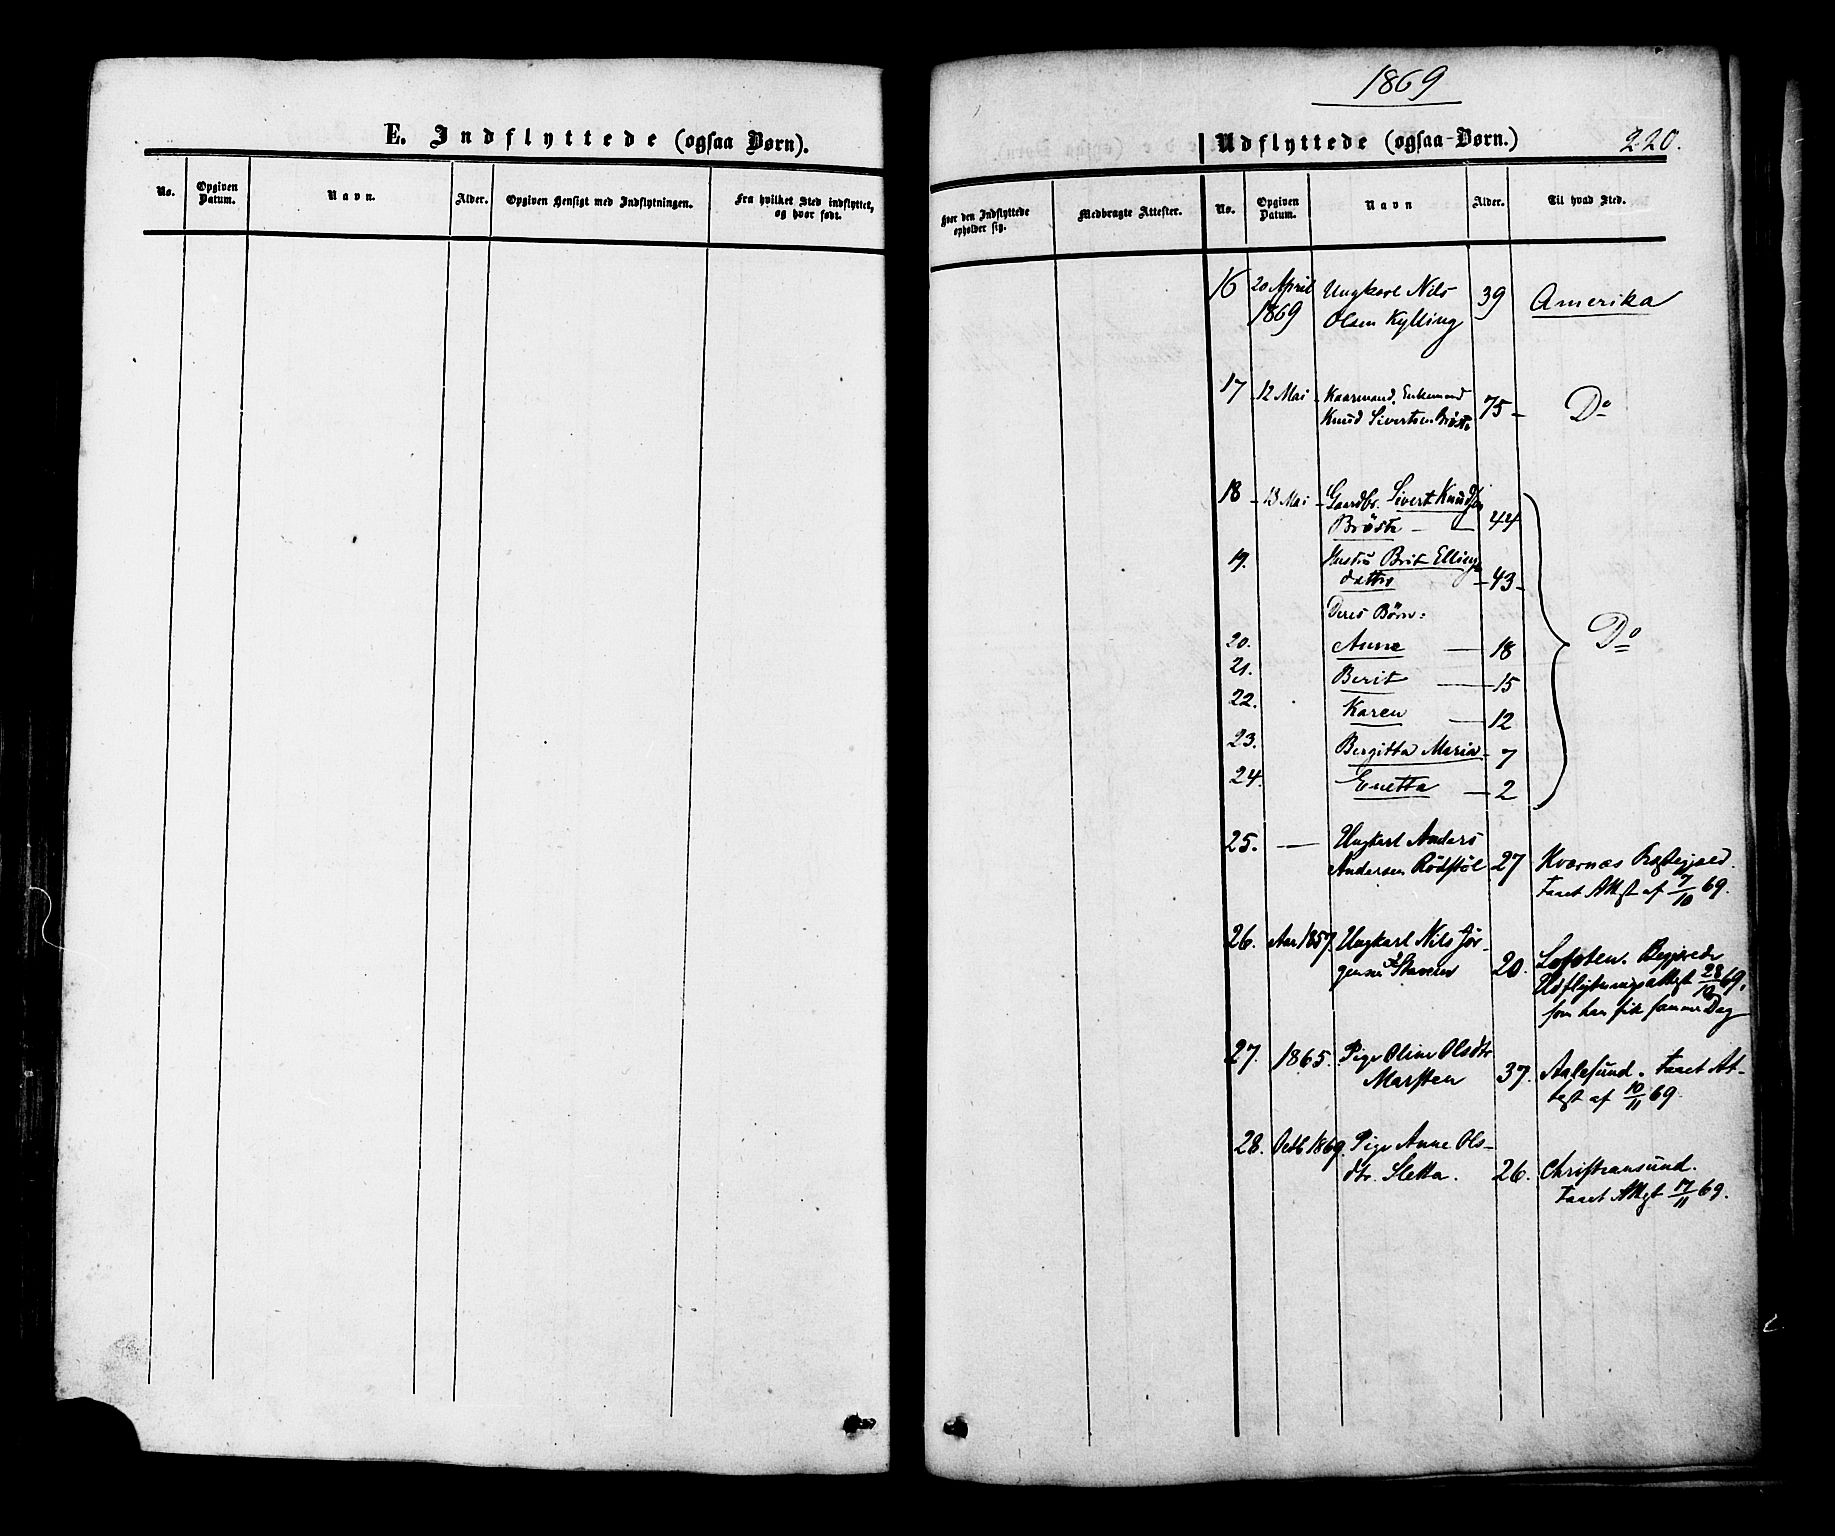 E. Indflyttede (ogsaa Børn).
No.
Opgiven Datum.
Navn.
Alder.
Opgiven Hensigt med Indflytningen.
Fra hvilket Sted indflyttet, og hvor født.
1869
Udflyttede (ogsaa Børn.)
220.
Hvor den Indflyttede opholder sig.
Medbragte Attester.
No.
Opgiven Datum.
Navn
Alder.
Til hvad Sted.
16 20 April Ungkarl Nils 39 Amerika
1869 Olsen Kylling
17 - 12 Mai - Kaarmand, Enkemand
Knud Sivertsen Brøste 75 - Do
18 - 13 Mai - Gaardbr. Sivert Knudsen
Brøste - 44
19. Hustru Brit Ellings
datter - 43 -
Deres Børn:
Do
20. Anne - 18
21. Berit - 15
22. Karen - 12
23. Bergitta Maria - 7
24. Enetta - 2
25. - Ungkarl Anders
Andersen Rødstøl 27 Kvernæs Præstegjeld.
Taaet Attst af 7/10 69.
26. Aar 1857. Ungkarl Nils Jør-
gensen Staven 20. Lofoten. Begjærede
Udflytningsattest 28/10 69.
som han fik samme Dag
27. 1865. Pige Oline Olsdtr
Marsten 37. Aalesund. Taaet At-
test af 10/11 69.
28. Octb 1869. Pige Anne Ols-
dtr. Sletta. 26. Christiansund.
Taaet Attst 17/11 69.